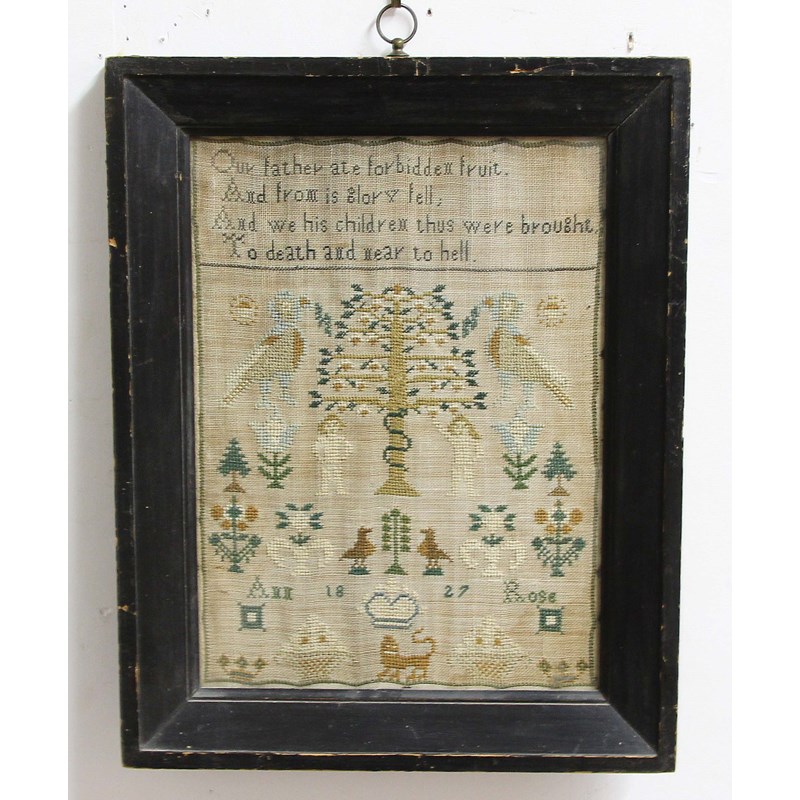 Our father ate forbidden fruit.
And from is glory fell;
And we his children thus were brought
To death and near to hell.
Ann 18 27 Rose